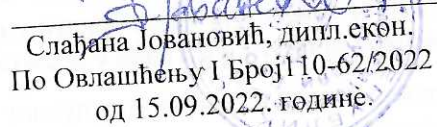 Слађана Јовановић, дипл.екон.
По Овлашћењу I Број110-62/2022
од 15.09.2022. године.